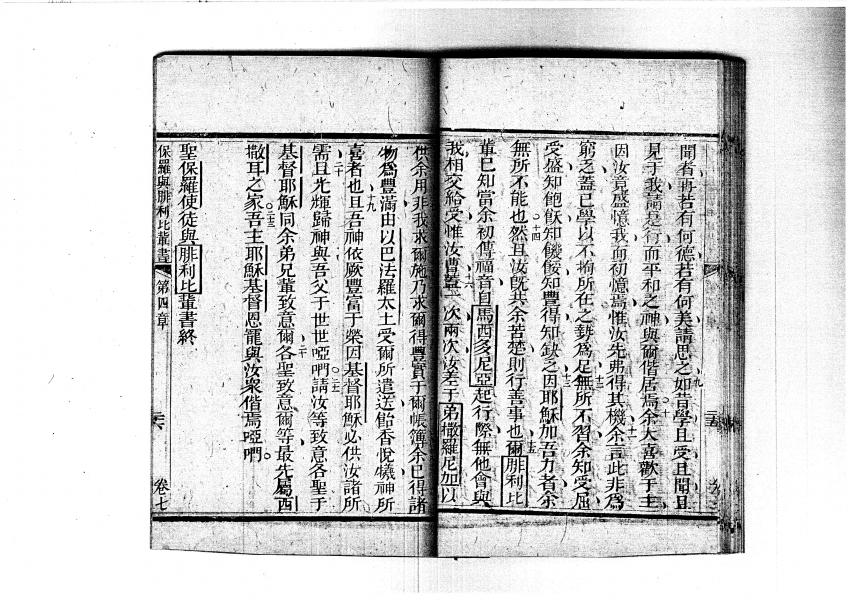 聞者再若有何德若有何美請思之如昔學且受且聞且
見于我請是行而平和之神與爾偕居焉余大喜歡于主
因汝竟盛憶我而初憶焉惟汝先弗得其機余言此非為
窮乏蓋已學以不拘所在之勢為足無所不習余知受屈
受盛知飽飫知饑餒知豐得知缺之因耶穌加吾力者余
無所不能也然且汝旣共余苦楚則行善事也爾腓利比
輩已知當余初傳福音自馬西多尼亞起行際無他會與
我相交給受惟汝曹葢一次兩次汝差于弟撒羅尼加以
供余用非我求爾施乃求爾得豐實于爾帳簿余已得諸
物為豐滿由以巴法羅太士受爾所遣送飴香悅犧神所
喜者也且吾神依厥豐富于榮因基督耶穌必供汝諸所
需且光輝歸神與吾父于世世啞吧請汝等致意各聖于
基督耶穌同余弟兄輩致意爾各聖致意爾等最先屬西
撒耳之家吾主耶穌基督恩寵與汝衆偕焉啞吧
聖保羅使徒與腓利比輩書終
保羅與腓利比輩書 第四章 卷七